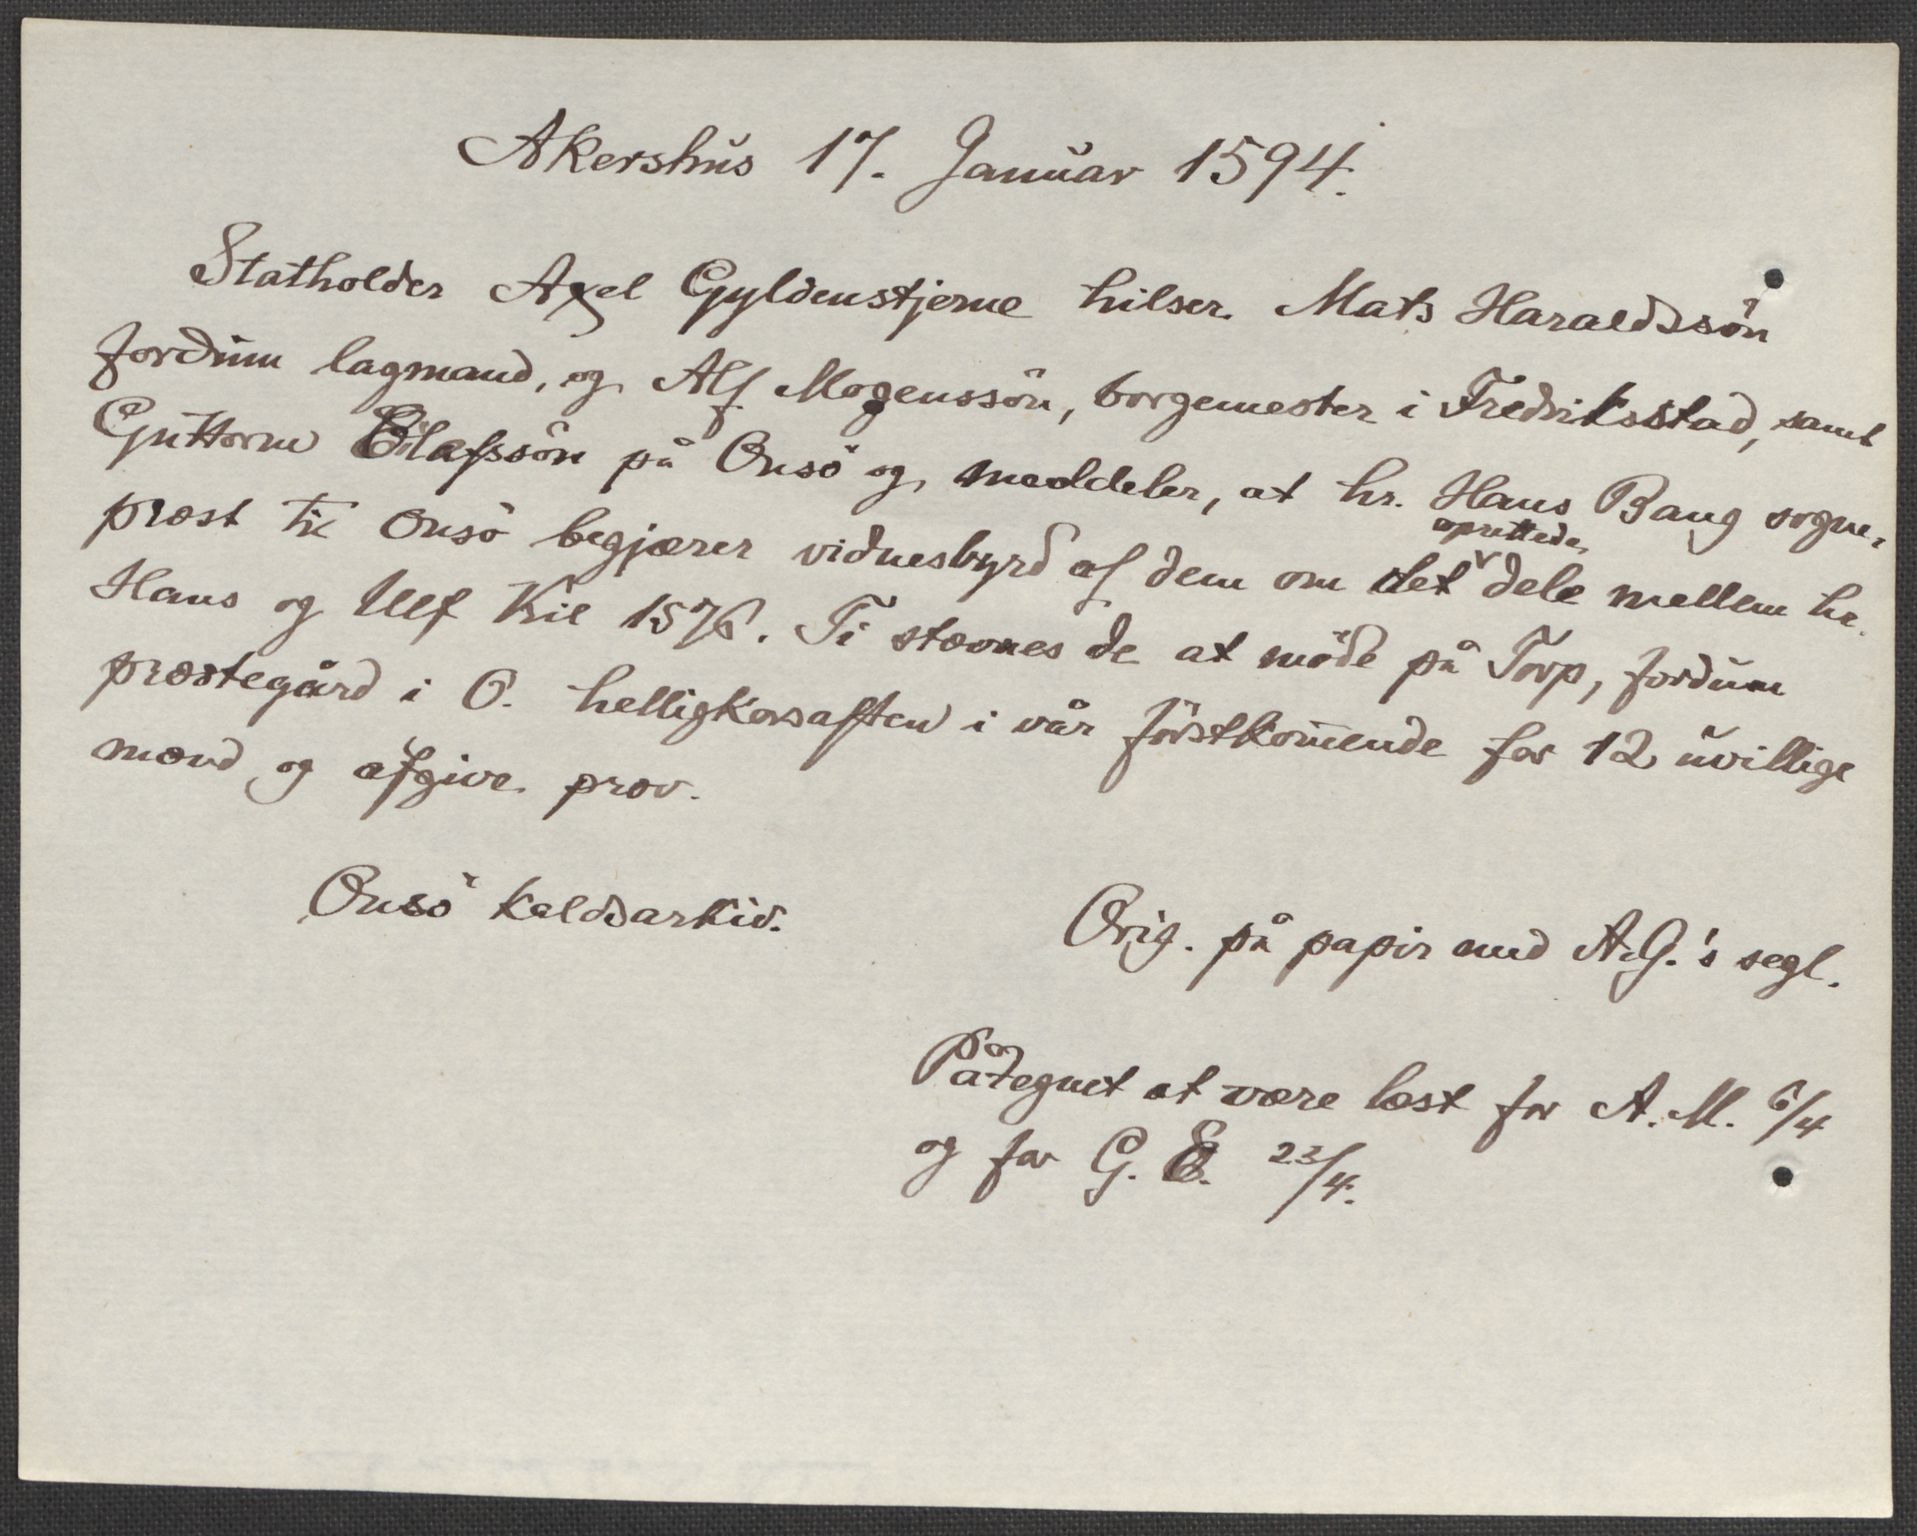 Akershus 17. Januar 1594.
Statholder Axel Gyldenstjerne hilser Mats Haraldssön
fordum lagmand, og Alf Mogenssön, borgemester i Fredriksstad, samt
Guttorm Eilafssön på Onsö og meddeler, at hr. Hans Bang sogne-
præst til Onsö begjærer vidnesbyrd af dem om det oprettede dele mellem hr.
Hans og Ulf Kil 1576. Ti stævnes de at möde på Torp, fordum
præstegård i O. helligkorsaften i vår förstkommende for 12 uvillige
mænd og afgive prov.
Onsö kaldsarkiv.
Orig. på papir med A.G.'s segl.
Påtegnet at være læst for A. M. 6/4
og for G. E. 23/4.